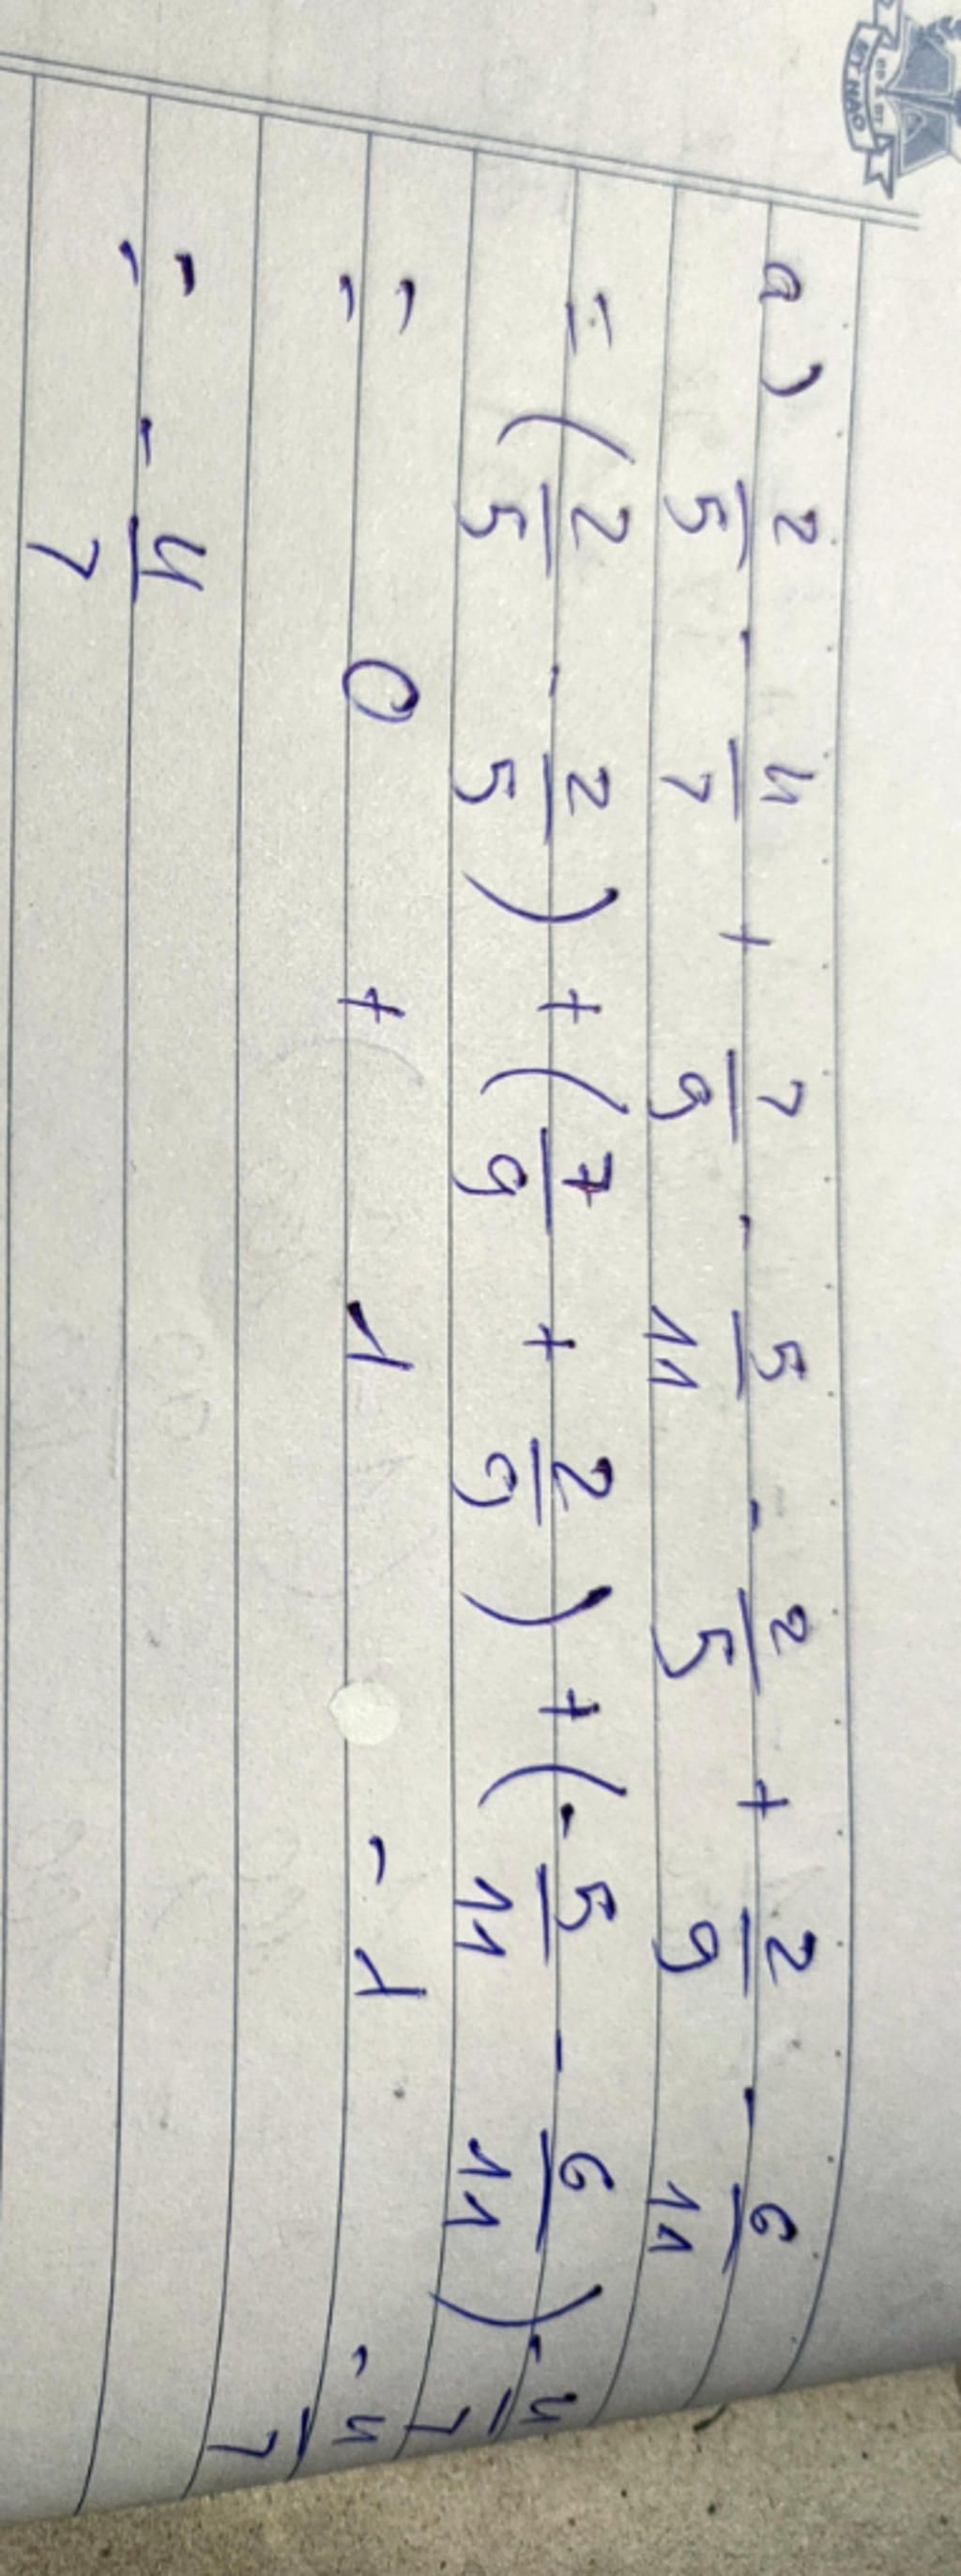 a) 2/5 - 4/7 + 7/9 - 5/11 - 2/5 + 2/9 - 6/11
= (2/5 - 2/5) + (7/9 + 2/9) + (-5/11 - 6/11) - 4/7
= 0 + 1 - 1 - 4/7
= -4/7